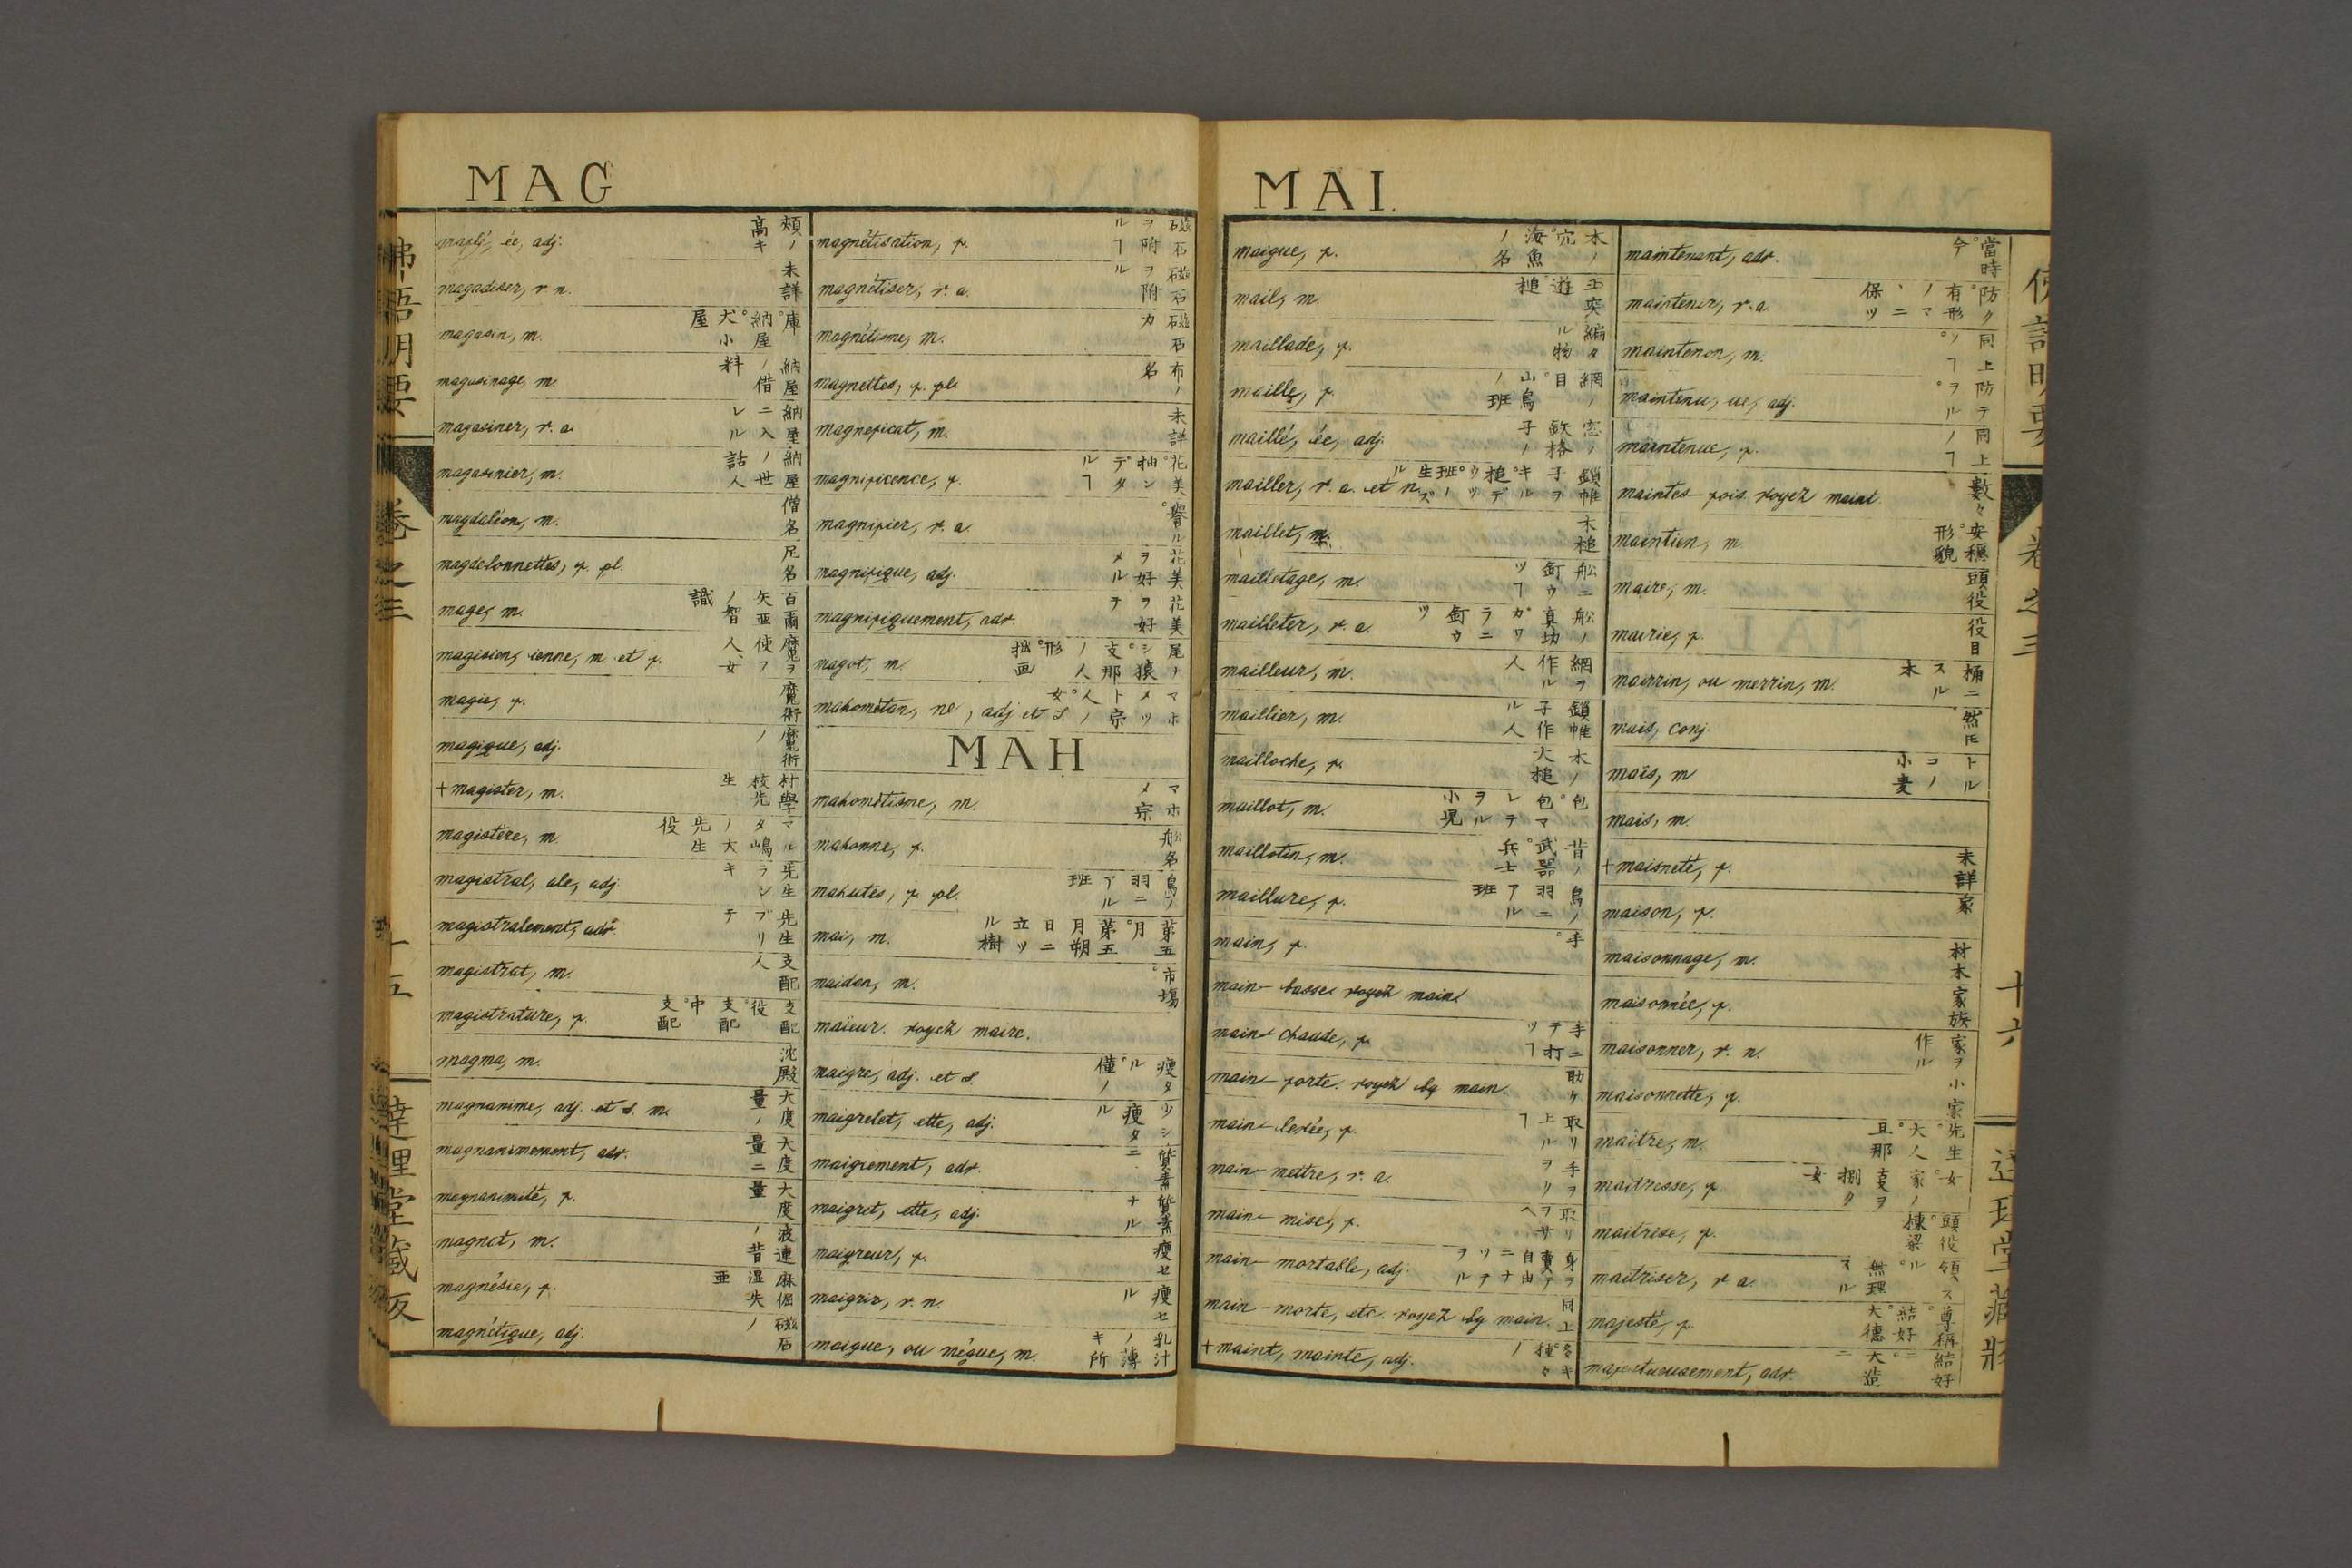 MAG
magadiser, v. n. 未詳
magasin, m. 庫。納屋。犬小屋
magasinage, m. 納屋ノ借料
magasiner, v. a. 納屋ニ入レル
magasinier, m. 納屋ノ世話人
magdaléon, m. 僧名
magdelonnettes, f. pl. 尼名
mage, m. 百爾矢亜ノ智識
magicien, ienne, m. et f. 魔ヲ使フ人、女
magie, f. 魔術
magique, adj. 魔術ノ
+magister, m. 村學校先生
magistère, m. マルタ嶋ノ大先生役
magistral, ale, adj 先生ラシキ
magistralement, adv. 先生ブリテ
magistrat, m. 支配人
magistrature, f. 支配役。支配中。支配
magma, m. 沈殿
magnanime, adj. et s. m. 大度量ノ
magnanimement, adv. 大度量ニ
magnanimité, f. 大度量
magnat, m.
magnésie, f. 麻倔涅失亜
magnétique, adj. 磁石ノ
magnétisation, f. 磁石ヲ附ルヿ
magnétiser, v. a. 磁石ヲ附ル
magnétisme, m. 磁石力
magnettes, f. pl. 布ノ名
magneficat, m. 未詳
magnificence, f. 花美。抽ンデタルヿ
magnifier, v. a. 譽ル
magnifique, adj. 花美ヲ好メル
magnifiquement, adv. 花美ヲ好テ
magot, m. 尾ナシ猿。支那人ノ形。拙画
mahométan, ne, adj et s. マホメツト宗ノ人。女
MAH
mahométisme, m. マホメ宗
mahonne, f. 舩名
mahutes, f. pl. 鳥ノ羽ニアル班
mai, m. 第五月。第五月朔日ニ立ツル樹
maidan, m. 市場
maieur. voyez maire.
maigre, adj. et s. 痩タル。僅ノ
maigrelet, ette, adj. 少シ痩タル
maigrement, adv. 質素ニ
maigret, ette, adj. 質素ナル
maigreur, f. 痩セ
maigrir, v. n. 痩セル
maigue, ou mégue, m. 乳汁ノ薄キ所
佛語明要
卷之三
十五
達理堂蔵版
MAI.
maigue, f. 木ノ穴。海魚ノ名
mail, m. 玉突遊。槌
maillade, f. 編タル物
maille, f. 網ノ目。山鳥ノ班
maillé, ée, adj. 窓ノ鉄格子ノ
mailler, v. a. et n.
maillet, m. 木槌
mailletage, m. 舩ニ釘ウツヿ
mailleter, v. a.
mailleur, m. 網ヲ作ル人
maillier, m. 鎖帷子作ル人
mailloche, f. 木ノ大槌
maillot, m. 包。包マレテヲル小児
maillotin, m. 昔ノ武器。兵士
maillure, f. 鳥ノ羽ニアル班
main, f. 手。
main-basse voyez main
main chaude, f. 手ニテ打ツヿ
main-forte. voyez by main. 助ケ
main-levée, f. 取リ上ルヿ
main-mettre, v. a.
main-mise, f.
main-mortable, adj.
main-morte, etc. voyez by main. 同上
+maint, mainte, adj. 多キ。種々ノ
maintenant, adv. 當時。今
maintenir, v. a.
maintenon, m. 同上
maintenu, ue, adj.
maintenue, f. 同上
maintes fois voyez maint 數々
maintien, m. 安穏。形貌
maire, m. 頭役
mairie, f. 役目
mairrin, ou merrin, m. 桶ニスル木
mais, conj. 然ドモ
maïs, m トルコノ小麦
mais, m.
+maisneté, f. 未詳
maison, f. 家
maisonnage, m. 材木
maisonnée, f. 家族
maisonner, v. n. 家ヲ作ル
maisonnette, f. 小家
maître, m. 先生。大人。旦那
maitresse, f. 女。家ノ支ヲ捌ク女
maitrise, f. 頭役。棟梁
maitriser, v a.
majesté, f. 尊稱。結好。大徳
majestueusement, adv. 結好ニ。大造ニ
卷之三
十六